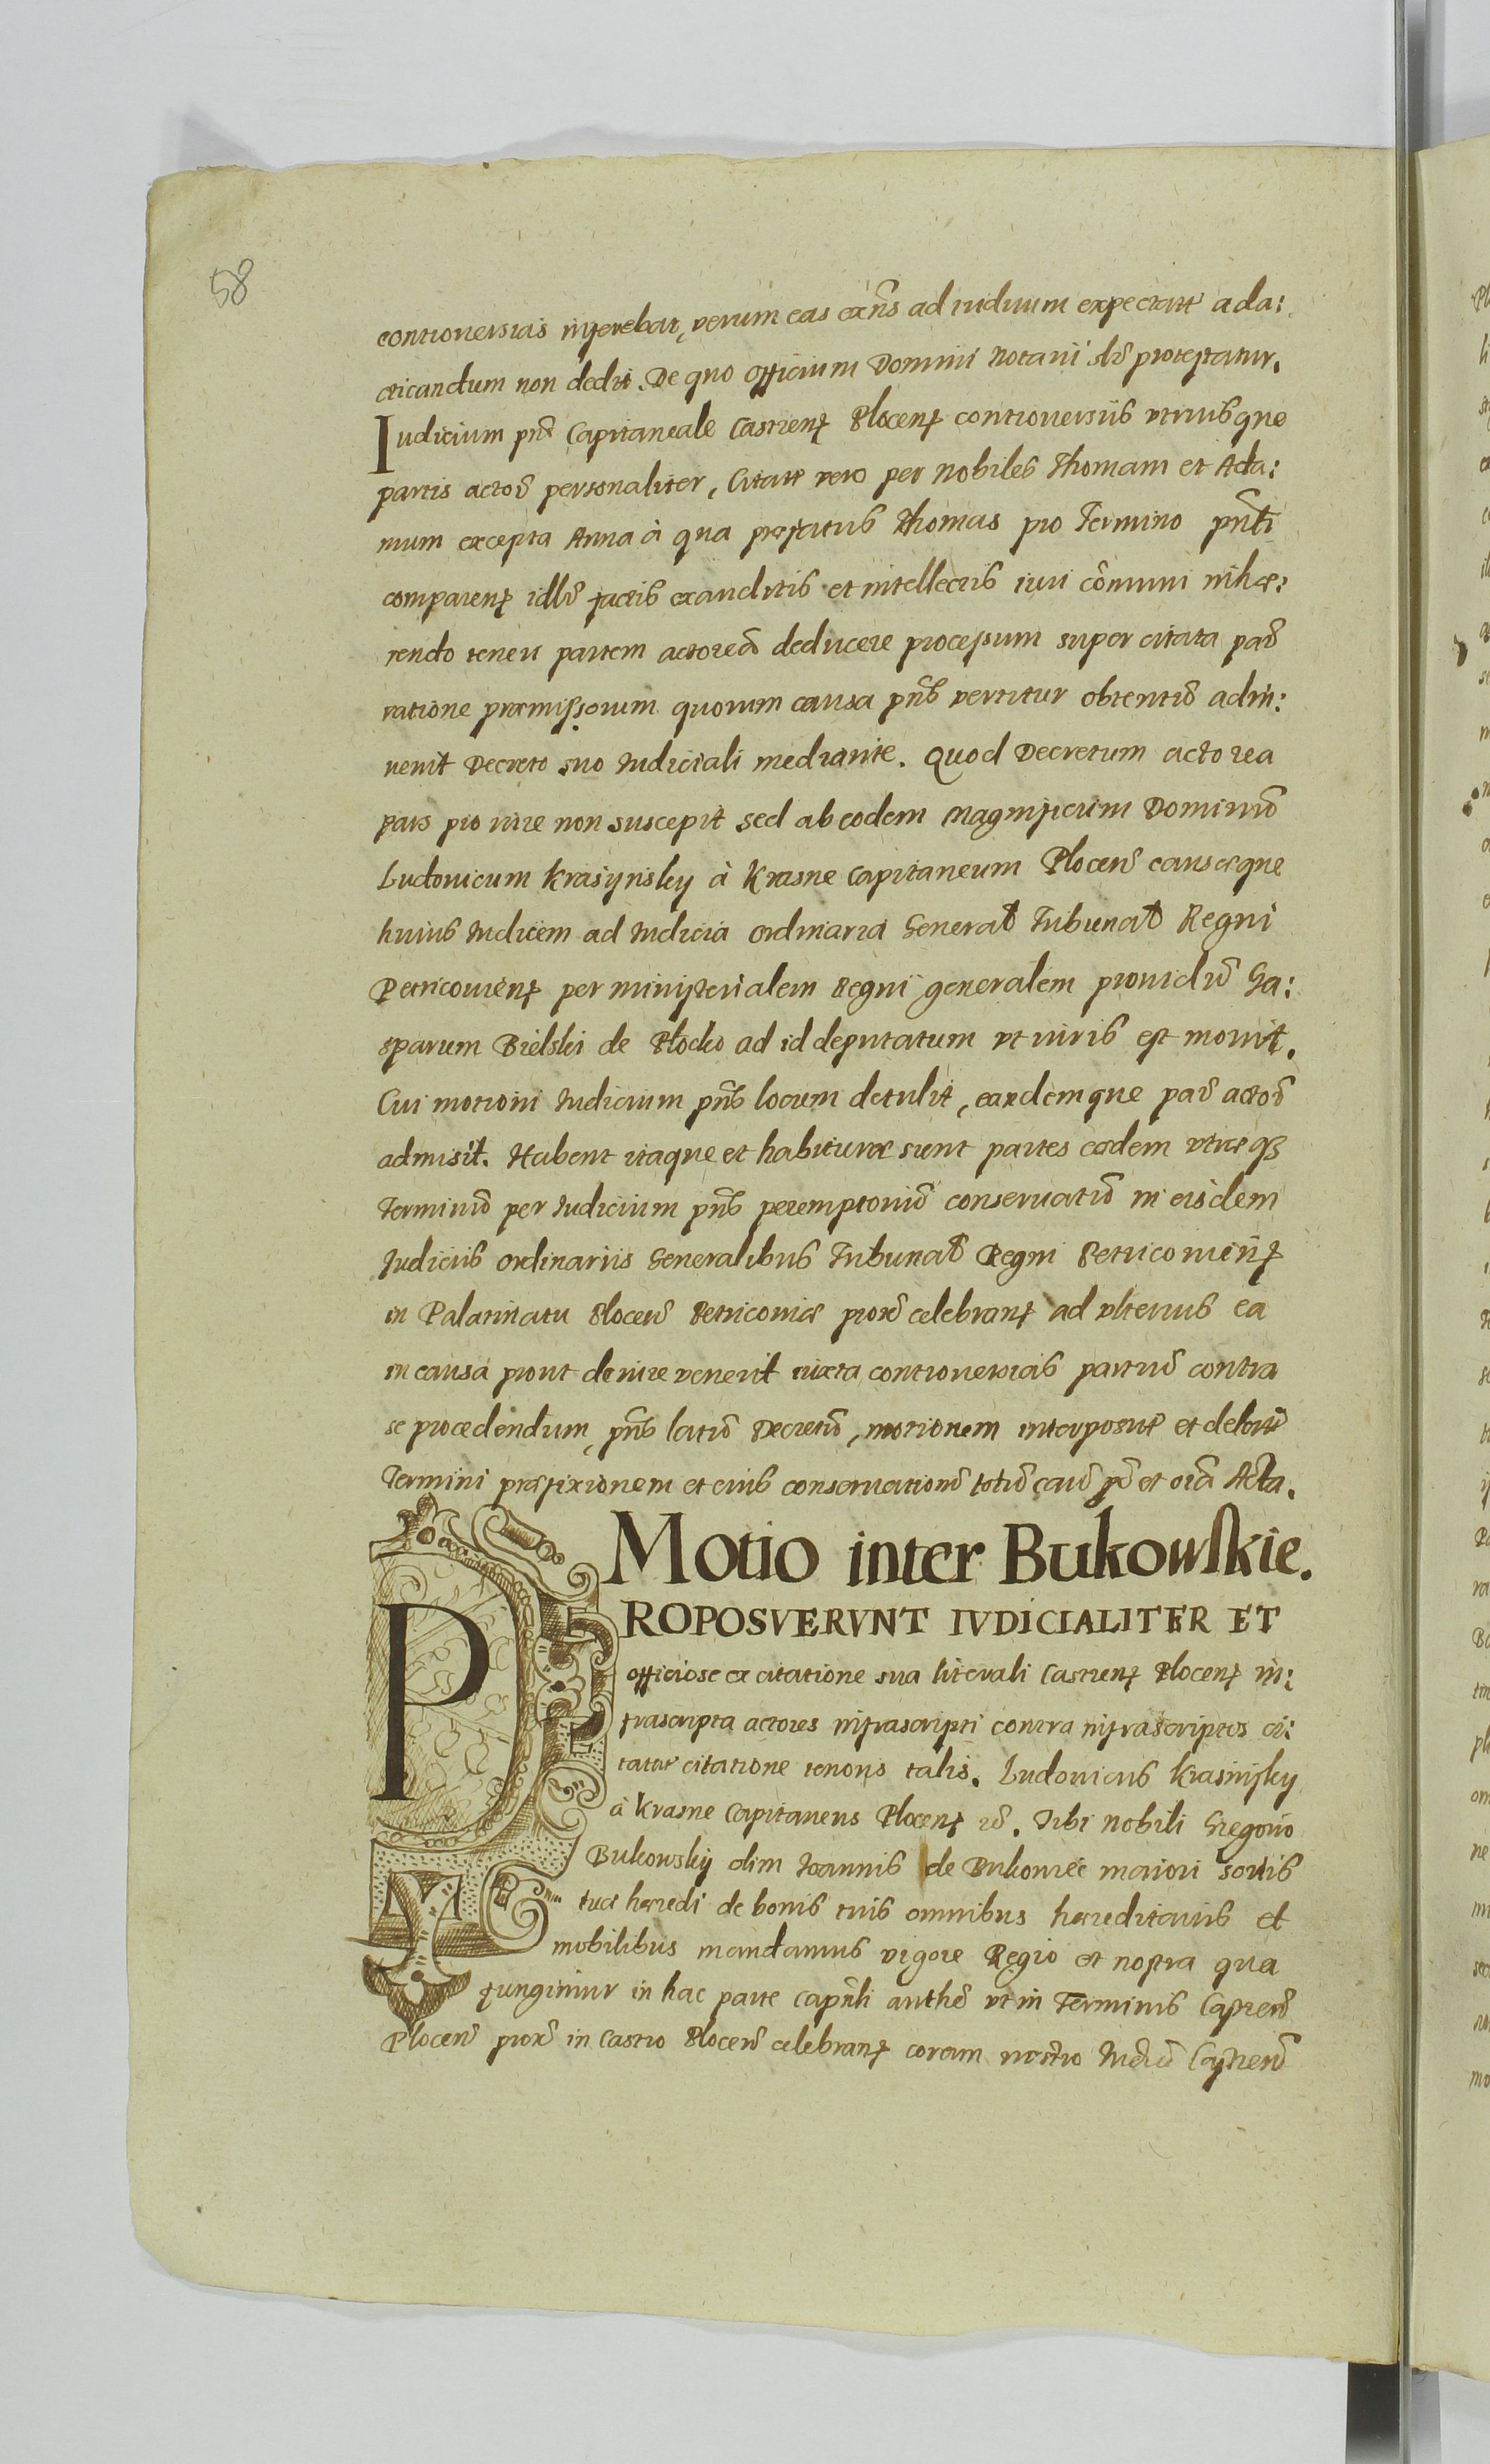 58
controuersias ingerebat, verum eas exñs ad iuduum expectare ada:
cticandum non dedit. De quo officium Domini Notarii slr̃ protestatur.
Iudicium pñs Capitaneale Castreneȝ Ploceneȝ controuersiis vtriusque
partis actoꝰ personaliter, Citate vero per Nobiles Thomam et Ada:
mum excepta Anna à qua præfatus Thomas pro Termino pñti
compareneȝ illꝰ factis exauditis et intellectis iuri cõmuni inhæ:
rendo teneri partem actoreã deducere processum super citata parꝰ
ratione præmissorum quorum causa pñs vertitur obtentũ adin:
uenit Decreto suo Iudiciali mediante. Quod Decretum actorea
pars pro iure non suscepit sed ab eodem Magnificum Dominũ
Ludouicum Krasijnsky à Krasne Capitaneum Plocenꝰ causæque
huius Iudicem ad Iudicia ordinaria Generał Tribunał Regni
Petricouieneȝ per ministerialem Regni generalem prouidũ Ga:
sparum Bielski de Płocko ad id deputatum vt iuris est mouit.
Cui motioni Iudicium pñs locum detulit, eandemque parꝰ actoꝰ
admisit. Habent itaque et habituræ sunt partes eædem vtræqȝ
Terminũ per Iudicium pñs peremptoriũ conseruatũ in eisdem
Iudiciis ordinariis Generalibus Tribunał Regni Petricouieñeȝ
in Palatinatu Plocenꝰ Petricouiæ proxꝰ celebraneȝ ad vlterius ea
in causa prout de iure venerit iuxta controuersias partiũ contra
se procedendum, pñs latũ Decretũ, motionem interposite et delate
Termini præfixionem et eius conseruationẽ totiũ cauꝰ pꝰ et oĩa Acta.
Motio inter Bukowskie.
PROPOSVERVNT IVDICIALITER ET
officiose ex citatione sua literali Castreneȝ Ploceneȝ in:
frascripta actores infrascripti contra infrascriptos ci:
tatur citatione tenoris talis. Ludouicus Krasinsky
à Krasne Capitaneus Ploceneȝ ꝛꝰ. Tibi nobili Gregorio
Bukowskij olim Ioannis de Bukowiec maiori sortis
tuæ hæredi de bonis tuis omnibus hæreditariis et
mobilibus mandamus vigore Regio et nostra qua
fungimur in hac parte capñli authẽ vt in Terminis Castrenꝰ
Plocenꝰ proxꝰ in Castro Plocenꝰ celebraneȝ coram nostro Iudicꝰ Castrenꝰ